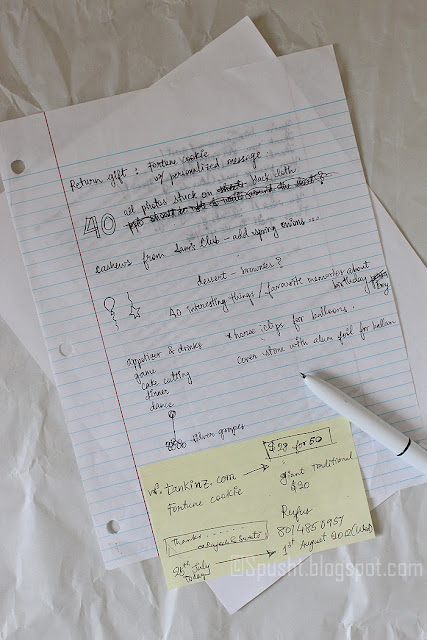 Return gift : Fortune cookie
w/ personalized message
40
all photos stuck on black cloth.
cashews from Sam's Club - add spring onions ...
dessert - brownies?
40 interesting things / favourite memories about
birthday boy
appetizer & drinks
game
cake cutting
dinner
dance
* horse clips for balloons.
cover stone with alum foil for balloon
silver grapes
$28 for 50
tankinz.com
fortune cookie
giant traditional
$20
Thanks
Rufus
8014850957
26th July
Today
1st August 2012 (Wed)
@Spusht.blogspot.com